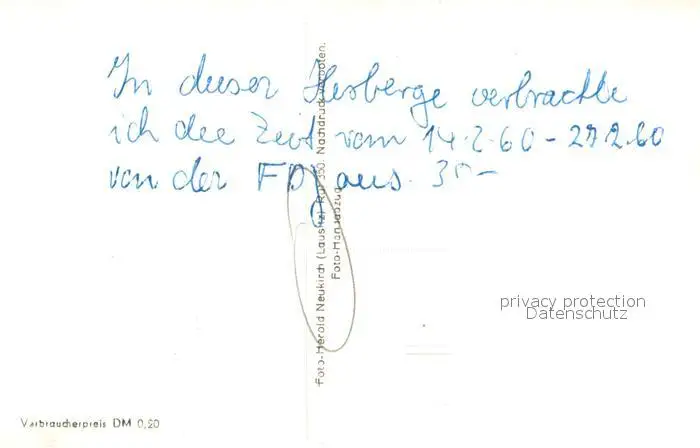 In dieser Herberge verbrachte
ich die Zeit vom 14.2.60 - 27.2.60
von der FDJ aus. 35 -
Foto-Herold Neukirch (Lausitz) Ruf 350. Nachdruck verboten.
Foto-Handabzug
privacy protection
Datenschutz
Verbraucherpreis DM 0,20